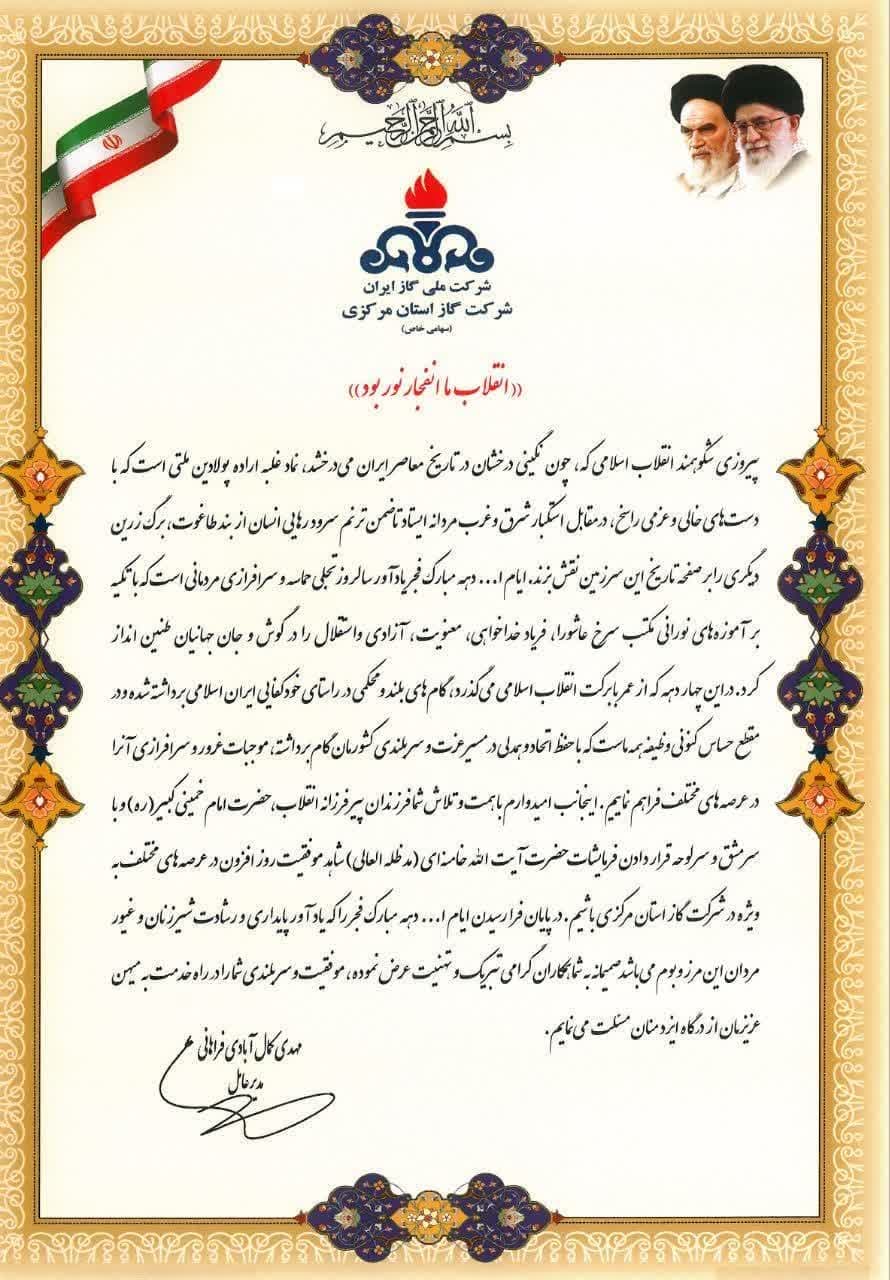 بسم الله الرحمن الرحیم
شرکت ملی گاز ایران
شرکت گاز استان مرکزی
(سهامی خاص)
((انقلاب ما انفجار نور بود))
پیروزی شکوهمند انقلاب اسلامی که، چون نگینی درخشان در تاریخ معاصر ایران می‌درخشد، نماد غلبه اراده پولادین ملتی است که با
دست‌های خالی و عزمی راسخ، در مقابل استکبار شرق و غرب مردانه ایستاد تا ضمن ترنم سرود رهایی انسان از بند طاغوت، برگ زرین
دیگری را بر صفحه تاریخ این سرزمین نقش بزند. ایام ا... دهه مبارک فجر یادآور سالروز تجلی حماسه و سرافرازی مردمانی است که با تکیه
بر آموزه‌های نورانی مکتب سرخ عاشورا، فریاد خداخواهی، معنویت، آزادی واستقلال را در گوش و جان جهانیان طنین انداز
کرد. دراین چهار دهه که از عمر با برکت انقلاب اسلامی می‌گذرد، گام های بلند و محکمی در راستای خودکفایی ایران اسلامی برداشته شده و در
مقطع حساس کنونی وظیفه همه ماست که با حفظ اتحاد و همدلی در مسیر عزت و سربلندی کشورمان گام برداشته، موجبات غرور و سرافرازی آنرا
در عرصه های مختلف فراهم نماییم. اینجانب امیدوارم با همت و تلاش شما فرزندان پیر فرزانه انقلاب، حضرت امام خمینی کبیر(ره) و با
سرمشق و سرلوحه قرار دادن فرمایشات حضرت آیت الله خامنه‌ای (مد ظله العالی) شاهد موفقیت روز افزون در عرصه های مختلف به
ویژه در شرکت گاز استان مرکزی باشیم. در پایان فرا رسیدن ایام ا... دهه مبارک فجر را که یاد آور پایداری و رشادت شیرزنان و غیور
مردان این مرز و بوم می باشد صمیمانه به شما همکاران گرامی تبریک و تهنیت عرض نموده، موفقیت و سربلندی شما را در راه خدمت به میهن
عزیزمان از درگاه ایزد منان مسئلت می نمایم.
مهدی کمال آبادی فراهانی
مدیرعامل